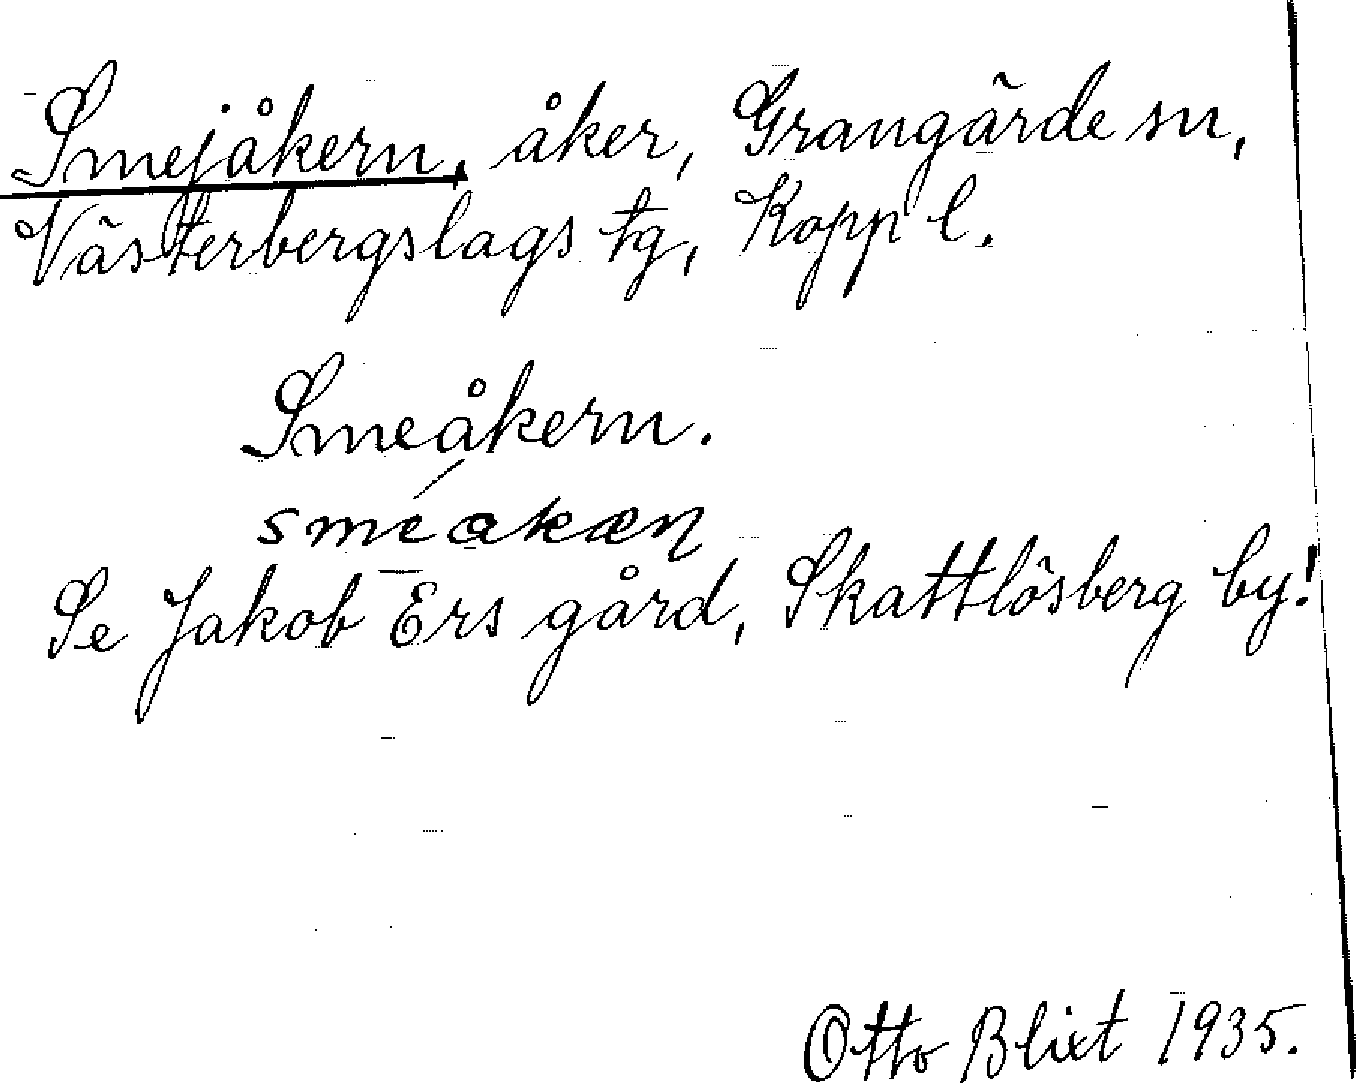 Smejåkern, åker, Grangärde sn,
Västerbergslags tg, Kopp l.
Smeåkern.
Se Jakob Ers gård, Skattlösberg by!
Otto Blixt 1935.